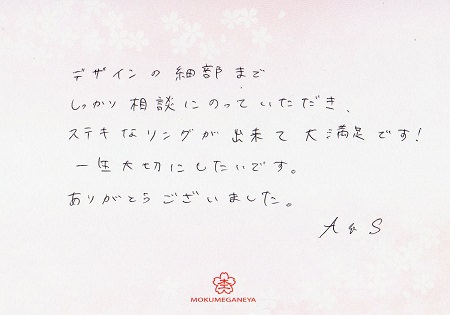 デザインの細部まで
しっかり相談にのっていただき、
ステキなリングが出来て大満足です!
一生大切にしたいです。
ありがとうございました。
A & S
MOKUMEGANEYA